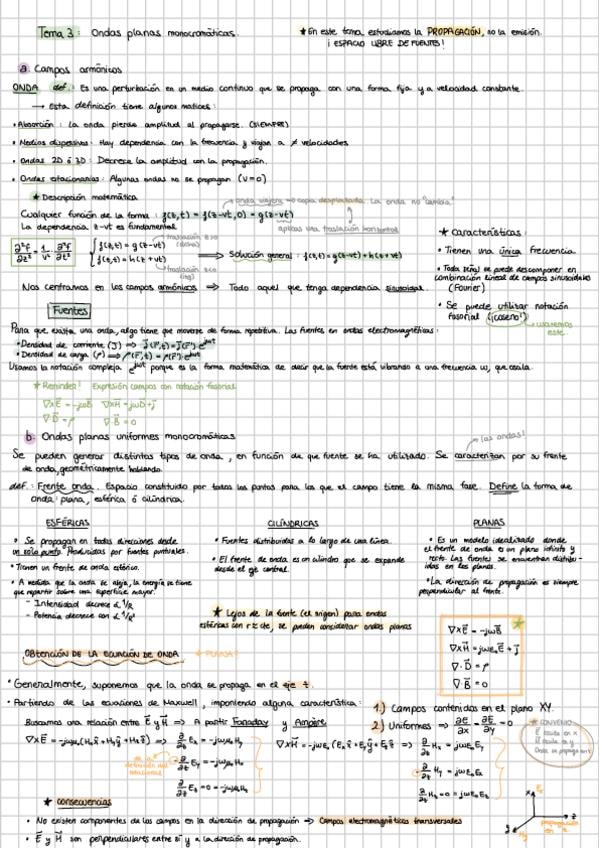 Tema 3: Ondas planas monocromáticas.
★ En este tema estudiamos la PROPAGACIÓN, no la emisión.
¡ ESPACIO LIBRE DE FUENTES!
a. Campos armónicos
ONDA def.: Es una perturbación en un medio continuo que se propaga con una forma fija y a velocidad constante.
→ Esta definición tiene algunos matices:
• Absorción: la onda pierde amplitud al propagarse. (SIEMPRE)
• Medios dispersivos: Hay dependencia con la frecuencia y viajan a ≠ velocidades
• Ondas 2D ó 3D: Decrece la amplitud con la propagación.
• Ondas estacionarias: Algunas ondas no se propagan (v=0)
★ Descripción matemática
onda viajera = copia desplazada. La onda no "cambia"
Cualquier función de la forma: f(z,t) = f(z-vt,0) = g(z-vt)
La dependencia z-vt es fundamental
aplicas una traslación horizontal
∂²f/∂z² = 1/v² ∂²f/∂t²
traslación z>0
f(z,t) = g(z-vt)
f(z,t) = h(z+vt)
traslación z<0
⟹ Solución general: f(z,t) = g(z-vt) + h(z+vt)
★ Características:
• Tienen una única frecuencia.
• Toda señal se puede descomponer en
combinación lineal de campos sinusoidales
(Fourier)
• Se puede utilizar notación
fasorial (¡coseno!)
usaremos
este.
Nos centramos en los campos armónicos ⟹ Todo aquel que tenga dependencia sinusoidal.
Fuentes
Para que exista una onda, algo tiene que moverse de forma repetitiva. Las fuentes en ondas electromagnéticas:
• Densidad de corriente (J) ⟹ J(r,t) = J(r) e^jωt
• Densidad de carga (ρ) ⟹ ρ(r,t) = ρ(r) e^jωt
Usamos la notación compleja e^jωt porque es la forma matemática de decir que la fuente está vibrando a una frecuencia ω, que oscila.
★ Reminder! Expresión campos con notación fasorial
∇×E = -jωB ∇×H = jωD + J
∇·D = ρ ∇·B = 0
b. Ondas planas uniformes monocromáticas
¡las ondas!
Se pueden generar distintos tipos de onda, en función de que fuente se ha utilizado. Se caracterizan por su frente
de onda, geométricamente hablando.
def.: Frente onda. Espacio constituido por todos los puntos para los que el campo tiene la misma fase. Define la forma de
onda: plana, esférica ó cilíndrica.
ESFÉRICAS
• Se propagan en todas direcciones desde
un solo punto. Producidas por fuentes puntuales.
• Tienen un frente de onda esférico.
• A medida que la onda se aleja, la energía se tiene
que repartir sobre una superficie mayor.
- Intensidad decrece α 1/R
- Potencia decrece con α 1/R²
CILÍNDRICAS
• Fuentes distribuidas a lo largo de una línea.
• El frente de onda es un cilindro que se expande
desde el eje central.
PLANAS
• Es un modelo idealizado donde
el frente de onda es un plano infinito y
recto. Las fuentes se encuentran distribui-
das en los planos.
• La dirección de propagación es siempre
perpendicular al frente.
★ Lejos de la fuente (el origen) para ondas
esféricas con r ≅ cte, se pueden considerar ondas planas
∇×E = -jωB
∇×H = jωε₀E + J
∇·D = ρ
∇·B = 0
OBTENCIÓN DE LA ECUACIÓN DE ONDA ★ PLANA!
• Generalmente, suponemos que la onda se propaga en el eje z.
• Partiendo de las ecuaciones de Maxwell, imponiendo alguna característica:
1.) Campos contenidos en el plano XY.
2) Uniformes ⟹ ∂E/∂x = ∂E/∂y = 0
Buscamos una relación entre E y H ⟹ A partir Faraday y Ampère
★ CONVENIO:
E oscila en x
H oscila en y
Onda se propaga en z
∇×E = -jωμ₀(Hₓx̂ + H_yŷ + H_zẑ) ⟹ ∂/∂z Eₓ = -jωμ₀H_y
∂/∂z E_y = -jωμ₀Hₓ
∂/∂z E_z = 0 = -jωμ₀H_z
de la
definición del
rotacional
∇×H = jωε₀(Eₓx̂ + E_yŷ + E_zẑ) ⟹ ∂/∂z Hₓ = jωε₀E_y
∂/∂z H_y = jωε₀Eₓ
∂/∂z H_z = 0 = jωε₀E_z
★ Consecuencias
• No existen componentes de los campos en la dirección de propagación ⟹ Campos electromagnéticos transversales
• E y H son perpendiculares entre sí y a la dirección de propagación.
x Eₓ
y H_y
z
propagación
en z